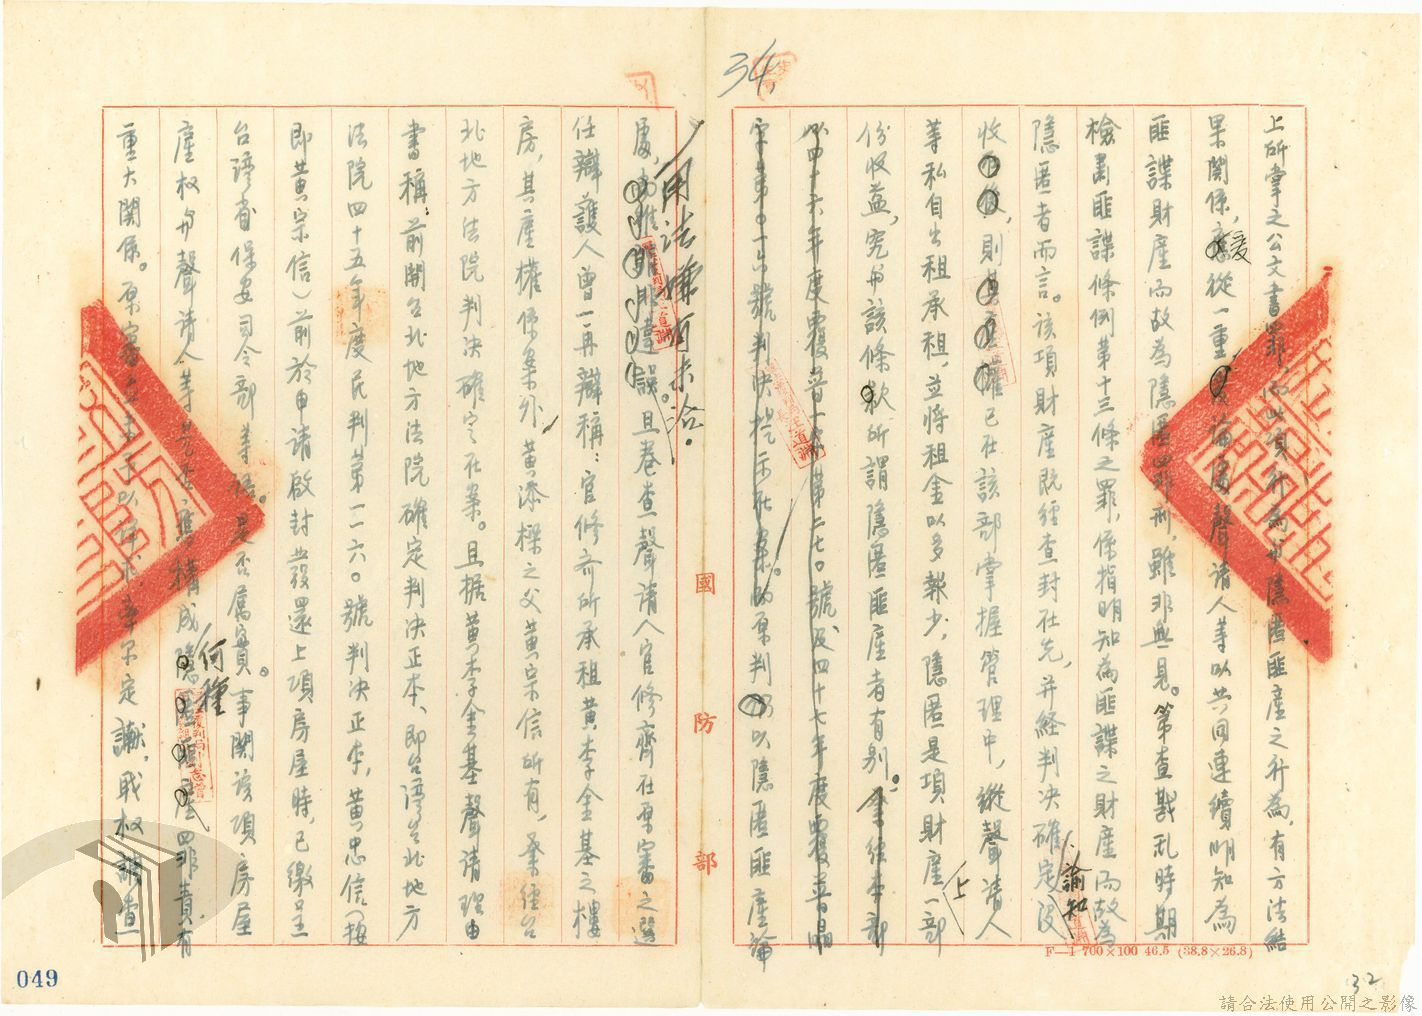 34
上所掌之公文書罪，而此項行為與隱匿匪產之行為，有方法結
果關係，應從一重處論處聲請人等以共同連續明知為
爰
匪諜財產而故為隱匿罪刑，雖非無見。第查戡亂時期
檢肅匪諜條例第十三條之罪，係指明知為匪諜之財產而故為
隱匿者而言。該項財產既經查封在先，并經判決確定沒
諭知
收後，則其產權已在該部掌握管理中，縱聲請人
等私自出租承租，並將租金以多報少，隱匿是項財產一部
上
份收益，究與該條款所謂隱匿匪產者有別。業經本部
以四十六年度覆普一字第七〇號及四十七年度覆普晶
字第〇一六號判決提示在案。原判仍以隱匿匪產論
用法嫌有未洽。
處，違誤。且卷查聲請人官修齊在原審之選
任辯護人曾一再辯稱：官修齊所承租黃李金基之樓
房，其產權係案外黃添樑之父黃宗信所有，業經台
北地方法院判決確定在案。且据黃李金基聲請理由
書稱：前開台北地方法院確定判決正本、即台灣台北地方
法院四十五年度民判第一一六〇號判決正本，黃忠信（按
即黃宗信）前於申請啟封發還上項房屋時，已繳呈
台灣省保安司令部等語。是否屬實，事關該項房屋
產权與聲請人等是否應構成隱匿匪產罪責，有
何種
重大關係。原審並未予以詳求，率爾定讞，職权調查
國防部
F—4 700×100 46.5 (38.8×26.8)
049
32
請合法使用公開之影像